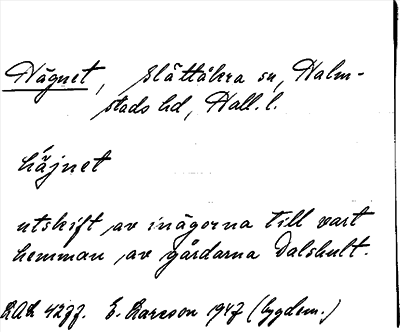 Hägnet, Slättåkra sn, Halm-
stads hd, Hall. l.
hä́jnet
utskift av inägorna till vart
hemman av gårdarna Dalshult.
E. Larsson 1947 (bygdem.)